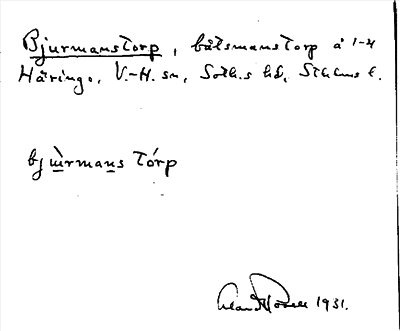 Bjurmanstorp, båtsmanstorp å 1-4
Häringe, V.-H. sn, Soth.s hd, Sthlms l.
bjù̲rmans tórp
1931.